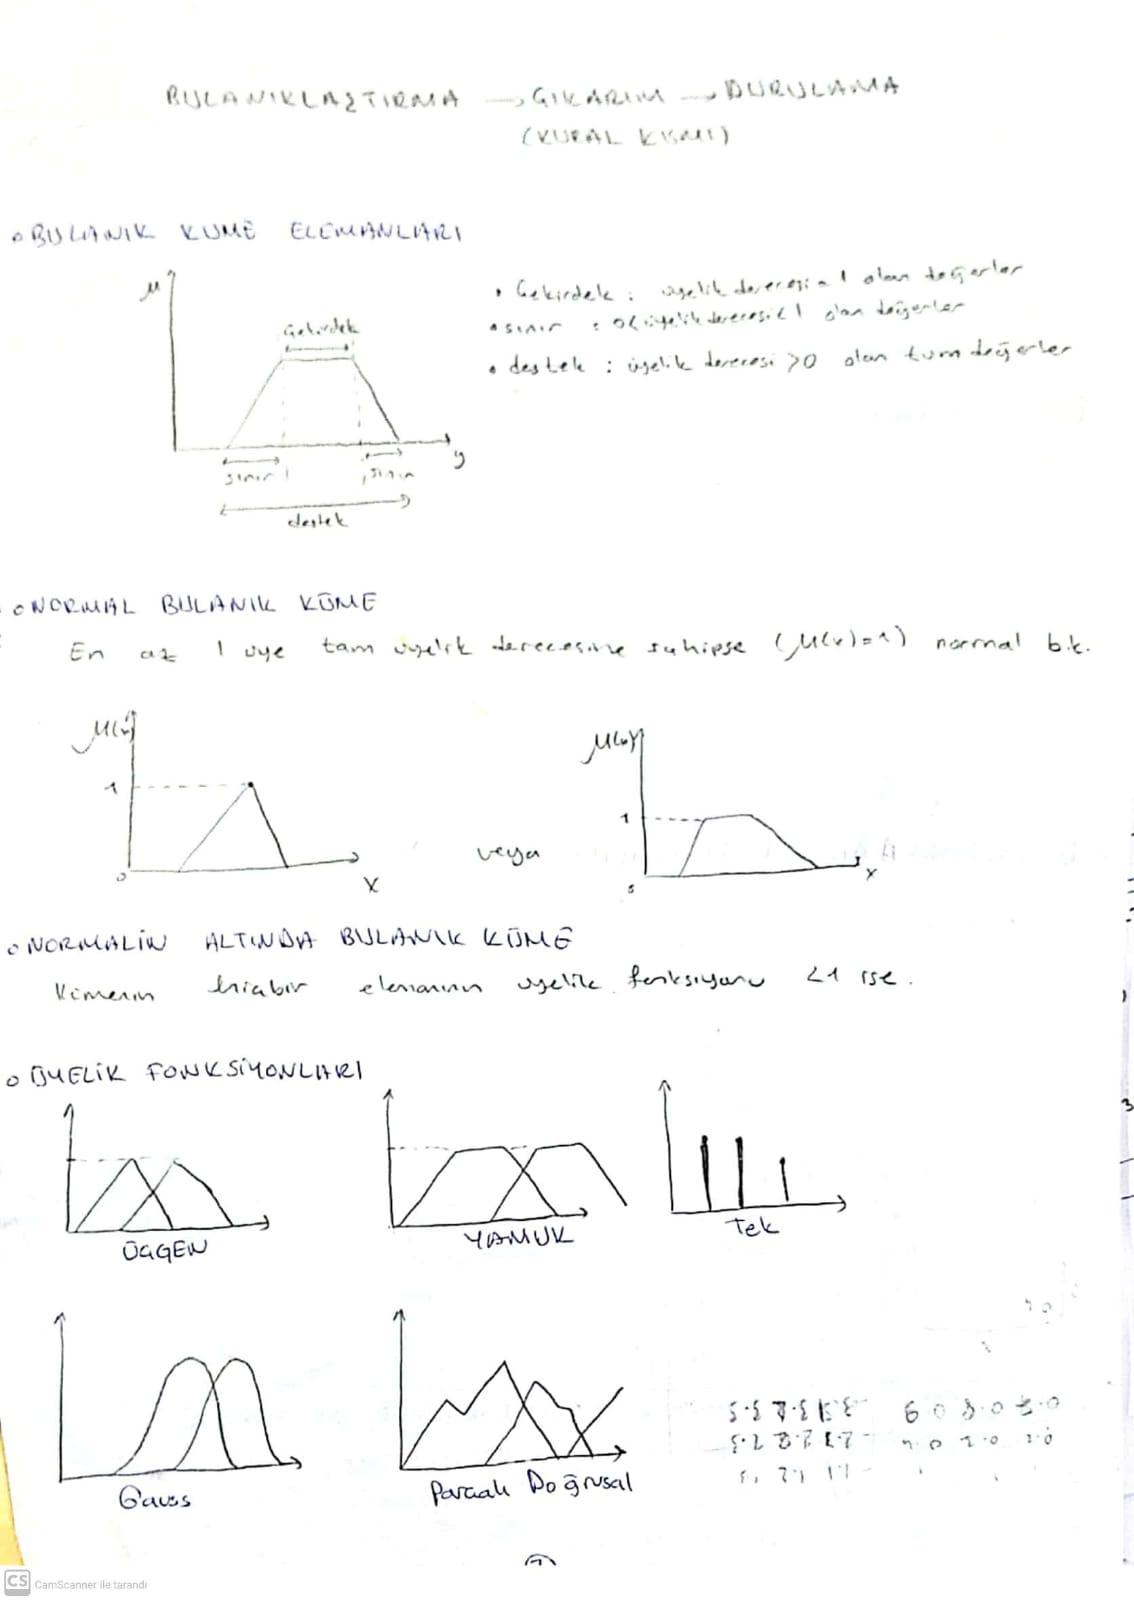 BULANIKLAŞTIRMA → ÇIKARIM → DURULAMA
(KURAL KISMI)
BULANIK KUME ELEMANLARI
μ
Çekirdek
sınır
sınır
destek
y
• Çekirdek : üyelik derecesi = 1 olan değerler
• sınır : 0< üyelik derecesi < 1 olan değerler
• destek : üyelik derecesi >0 olan tum değerler
NORMAL BULANIK KÜME
En az 1 uye tam üyelik derecesine sahipse (μ(x)=1) normal b.k.
μ(x)
1
0
x
veya
μ(x)
1
x
NORMALİN ALTINDA BULANIK KÜME
Kümenin hiçbir elemanının uyelik fonksiyonu <1 ise.
ÜYELİK FONKSİYONLARI
ÜÇGEN
YAMUK
Tek
Gauss
Parçalı Doğrusal
CS CamScanner ile tarandı